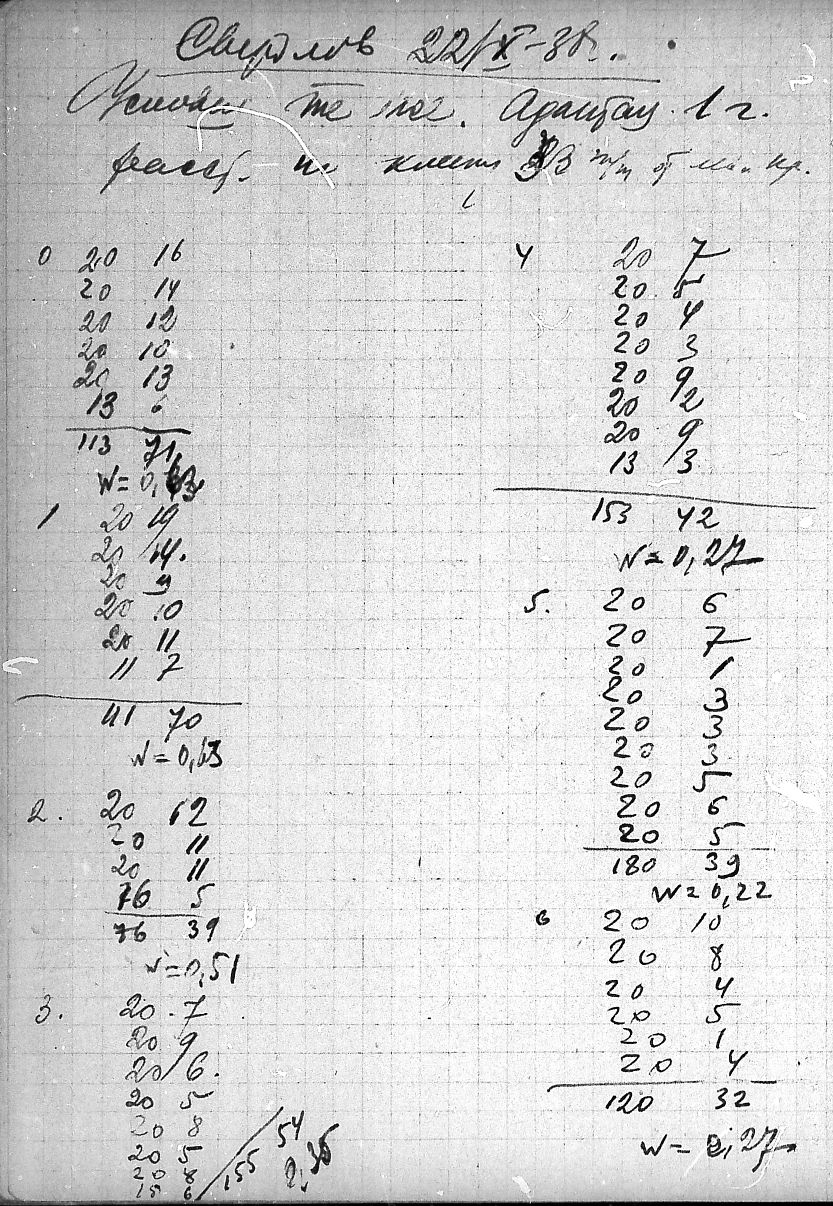 Свердлов 22/X-38г.
Условия те же. Адаптац. 1 г.
расст. 33 m/m от
0 20 16
20 14
20 12
20 10
20 13
13 6
113 71
W = 0,63
1 20 19
20 14.
20 9
20 10
20 11
11 7
111 70
W = 0,63
2. 20 12
20 11
20 11
16 5
76 39
W = 0,51
3. 20 7
20 9
20 6.
20 5
20 8
20 5
20 8
15 6
155 54
0,35
4 20 7
20 5
20 4
20 3
20 9
20 2
20 9
13 3
153 42
W = 0,27
5. 20 6
20 7
20 1
20 3
20 3
20 3
20 5
20 6
20 5
180 39
W = 0,22
6 20 10
20 8
20 4
20 5
20 1
20 4
120 32
W = 0,27